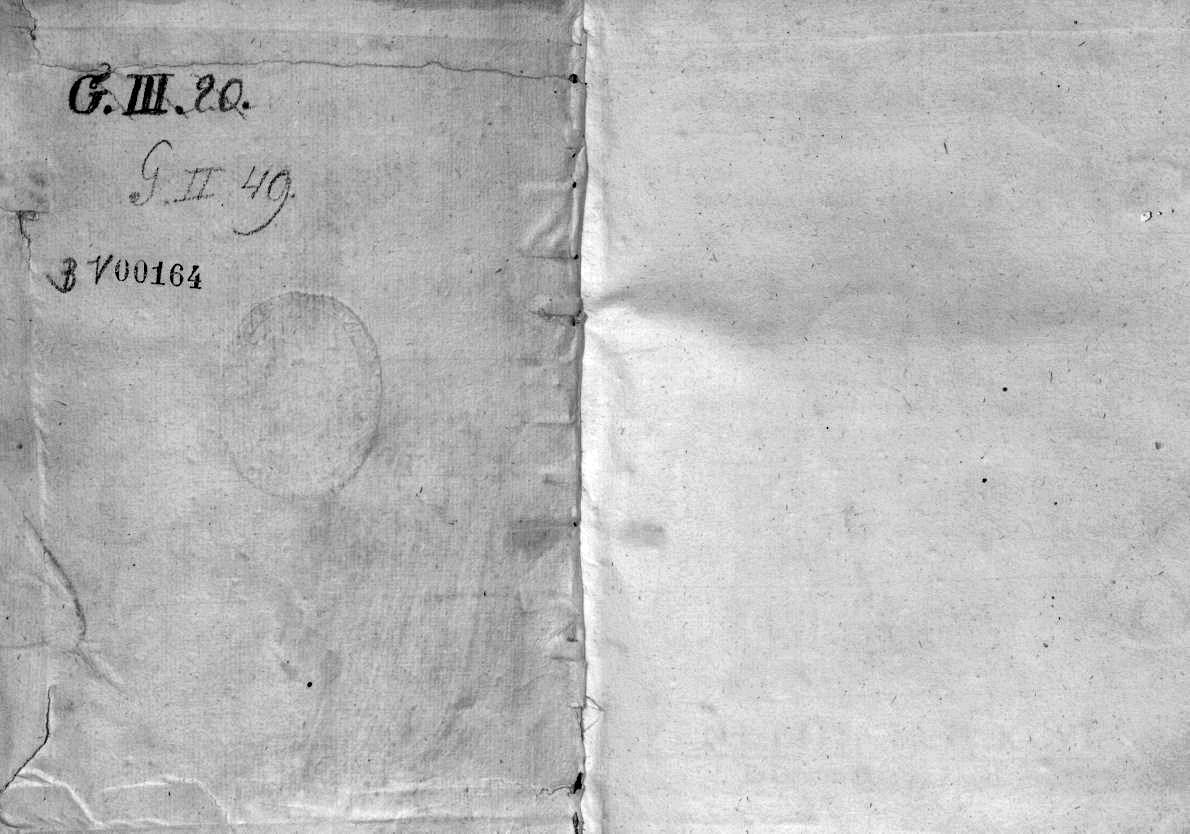 G. III. 20.
G. II. 49.
B V00164